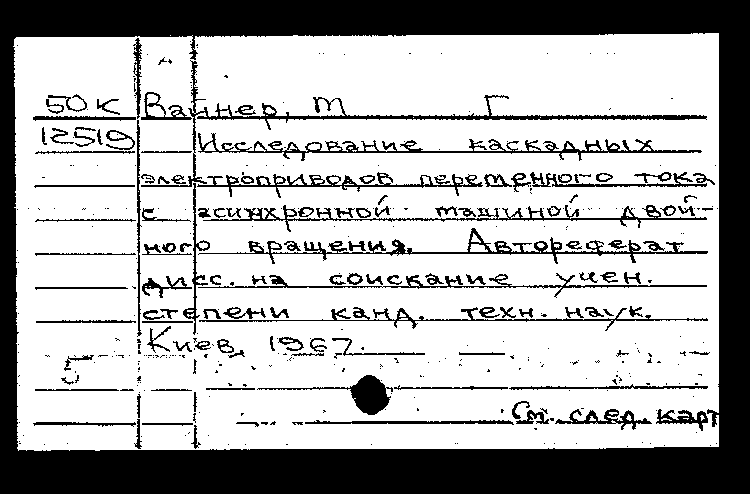 50К Вайнер, М Г
12519 Исследование каскадных
электроприводов переменного тока
с асинхронной машиной двой-
ного вращения. Автореферат
дисс. на соискание учен.
степени канд. техн. наук.
Киев, 1967.
5
См. след. карт